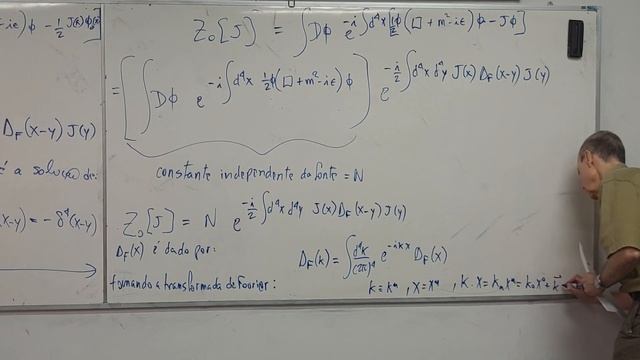 iε)ϕ - ½ J(x)ϕ(x)]
Δ_F(x-y) J(y)
é a solução de:
(x-y) = -δ⁴(x-y)
Z₀[J] = ∫Dϕ e^{-i∫d⁴x[½ϕ(□+m²-iε)ϕ-Jϕ]}
= [∫Dϕ e^{-i∫d⁴x ½ϕ(□+m²-iε)ϕ}] e^{-i/2 ∫d⁴x d⁴y J(x) Δ_F(x-y) J(y)}
constante independente da fonte = N
Z₀[J] = N e^{-i/2 ∫d⁴x d⁴y J(x) Δ_F(x-y) J(y)}
Δ_F(x) é dado por:
Δ_F(k) = ∫ d⁴k/(2π)⁴ e^{-ikx} Δ_F(x)
tomando a transformada de Fourier:
k = k^μ , x = x^μ , k·x = k_μ x^μ = k₀x⁰ + k⃗